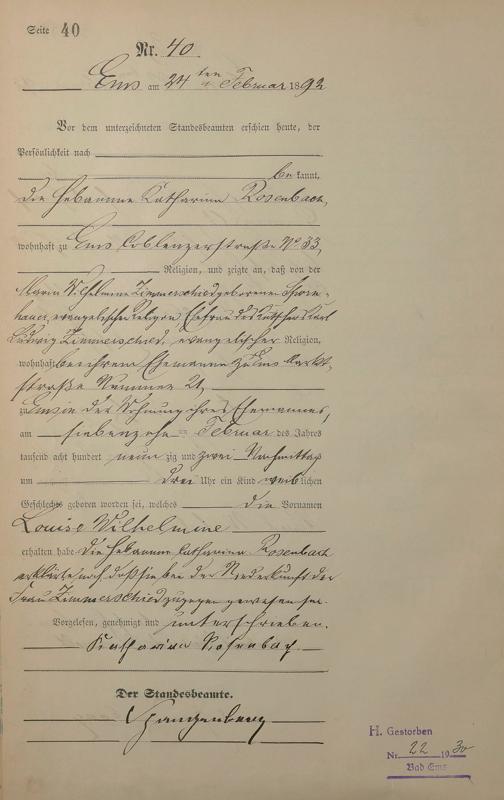 Seite 40
Nr. 40
Ems am 24ten Februar 1892
Vor dem unterzeichneten Standesbeamten erschien heute, der
Persönlichkeit nach
bekannt,
die Hebamme Katharina Rosenbach,
wohnhaft zu Ems Coblenzerstraße No 33,
Religion, und zeigte an, daß von der
Maria Wilhelmine Zimmerschied geborenen
evangelischer Religion, Ehefrau des Kutschers Karl
Ludwig Zimmerschied, evangelischer Religion,
wohnhaft bei ihrem Ehemanne zu Ems Markt-
straße Nummer 21,
zu Ems in der Wohnung ihres Ehemannes,
am siebenzehn Februar des Jahres
tausend acht hundert neunzig und zwei Nachmittag
um drei Uhr ein Kind weiblichen
Geschlechts geboren worden sei, welches die Vornamen
Louise Wilhelmine
erhalten habe. Die Hebamme Katharina Rosenbach
erklärte noch, daß sie bei der Niederkunft der
Frau Zimmerschied zugegen gewesen sei.
Vorgelesen, genehmigt und unterschrieben.
Katharina Rosenbach
Der Standesbeamte.
Spangenberg
H. Gestorben
Nr. 22 1930
Bad Ems